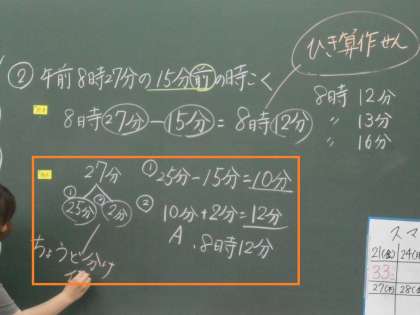 ひき算作せん
② 午前8時27分の15分前の時こく
8時27分－15分＝8時12分
8時12分
〃 13分
〃 16分
27分
① ②
25分 2分
ちょうど分け
① 25分－15分＝10分
② 10分＋2分＝12分
A. 8時12分
スマ
21(金) 24(月
33
27(月) 28(金